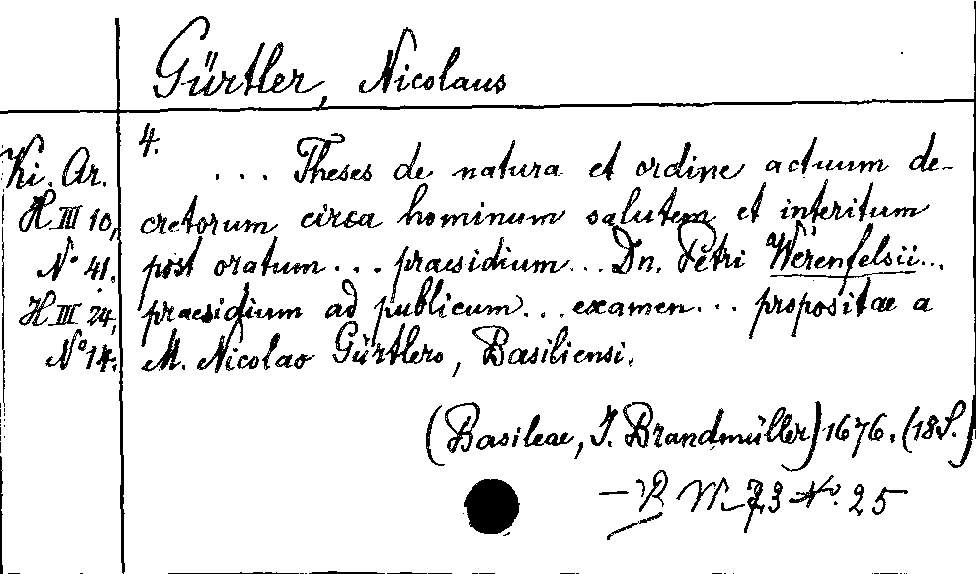 Gürtler, Nicolaus
4.
Ki. Ar.
H III 10,
N° 41.
H III 24,
N° 14.
... Theses de natura et ordine actuum de-
cretorum circa hominum salutem et interitum
post oratum ... praesidium ... Dn. Petri Werenfelsii ...
praesidium ad publicum ... examen ... propositae a
M. Nicolao Gürtlero, Basiliensi.
(Basileae, J. Brandmüller) 1676. (18 S.)
73 N° 25